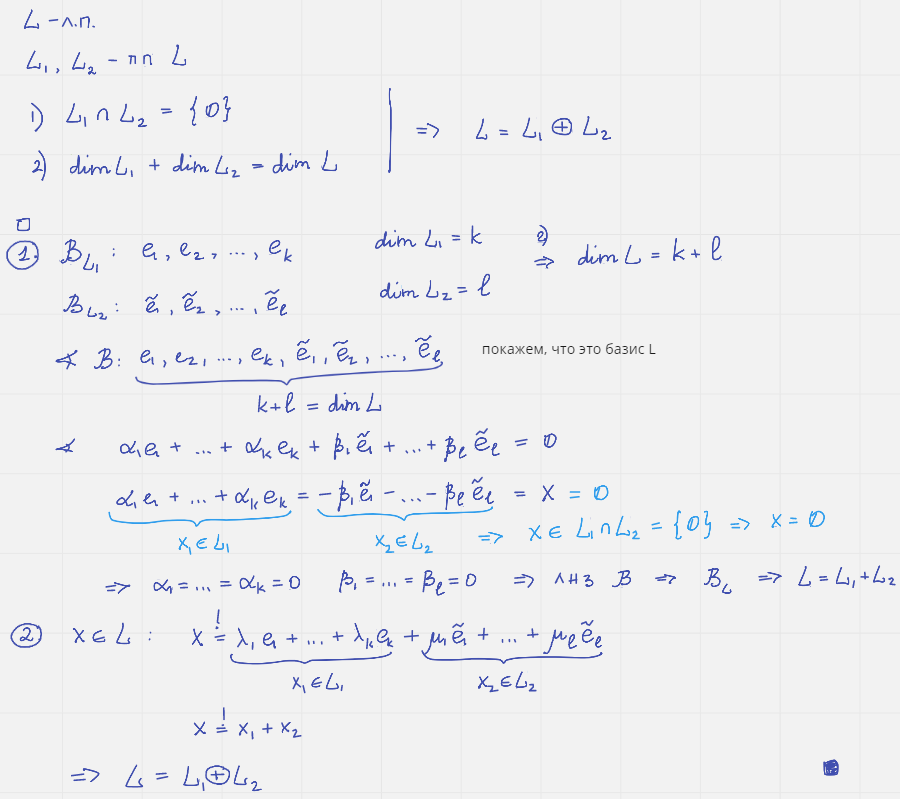 L - л.п.
L₁, L₂ - пп L
1) L₁ ∩ L₂ = {0}
2) dim L₁ + dim L₂ = dim L
⇒ L = L₁ ⊕ L₂
□
1. B_L₁ : e₁, e₂, ..., eₖ dim L₁ = k 2) ⇒ dim L = k + l
B_L₂ : ẽ₁, ẽ₂, ..., ẽₗ dim L₂ = l
∢ B: e₁, e₂, ..., eₖ, ẽ₁, ẽ₂, ..., ẽₗ покажем, что это базис L
k+l = dim L
∢ α₁e₁ + ... + αₖeₖ + β₁ẽ₁ + ... + βₗẽₗ = 0
α₁e₁ + ... + αₖeₖ = -β₁ẽ₁ - ... - βₗẽₗ = x = 0
x₁ ∈ L₁ x₂ ∈ L₂ ⇒ x ∈ L₁ ∩ L₂ = {0} ⇒ x = 0
⇒ α₁ = ... = αₖ = 0 β₁ = ... = βₗ = 0 ⇒ ЛНЗ B ⇒ B_L ⇒ L = L₁ + L₂
2 x ∈ L : x =! λ₁e₁ + ... + λₖeₖ + μ₁ẽ₁ + ... + μₗẽₗ
x₁ ∈ L₁ x₂ ∈ L₂
x =! x₁ + x₂
⇒ L = L₁ ⊕ L₂ ■